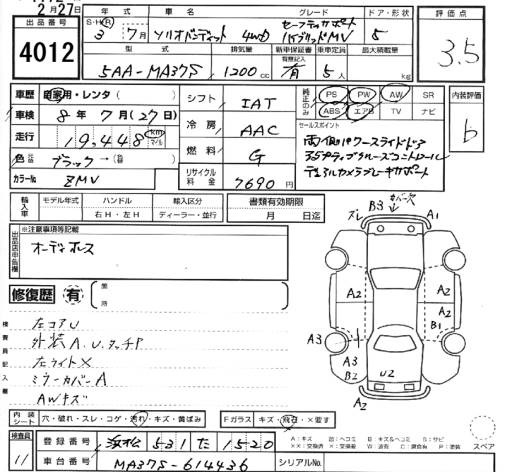 2月27日
年式 車名 グレード ドア・形状 評価点
出品番号 S・H・R 3年 7月 ソリオバンディット 4WD セーフティサポート HYBRID MV 5
4012 3.5
型式 排気量 新車保証書 車車定員 最大積載量
5AA-MA37S 1200cc 有 5人 kg
車歴 自家用・レンタ シフト IAT 純正のみ PS PW AW SR 内装評価
車検 8年 7月(27日) ABS エアB TV ナビ b
冷房 AAC セールスポイント
走行 19,448 km マイル 両側パワースライドドア
燃料 G
色 元色 ブラック→
デュアルカメラブレーキサポート
カラーNo. ZMV リサイクル料金 7690円
輸入車 モデル年式 ハンドル 輸入区分 書類有効期限
右H・左H ディーラー・並行 月 日迄
ズレ A1
出品店申告欄 ※注意事項等記載
オーディオレス
A2 A2
修復歴 有 箇所
B1
検査員記入欄 左コアU A3 A2
外装A.U.タッチP A3
左ライト× B2 U2
ミラーカバーA
AWキズ A2
内装シート 穴・破れ・スレ・コゲ・汚れ・キズ・黄ばみ Fガラス キズ・飛石・×要す
スペア
検査員 11 登録番号 浜松 531 た 1520
車台番号 MA37S-614436 シリアルNo.